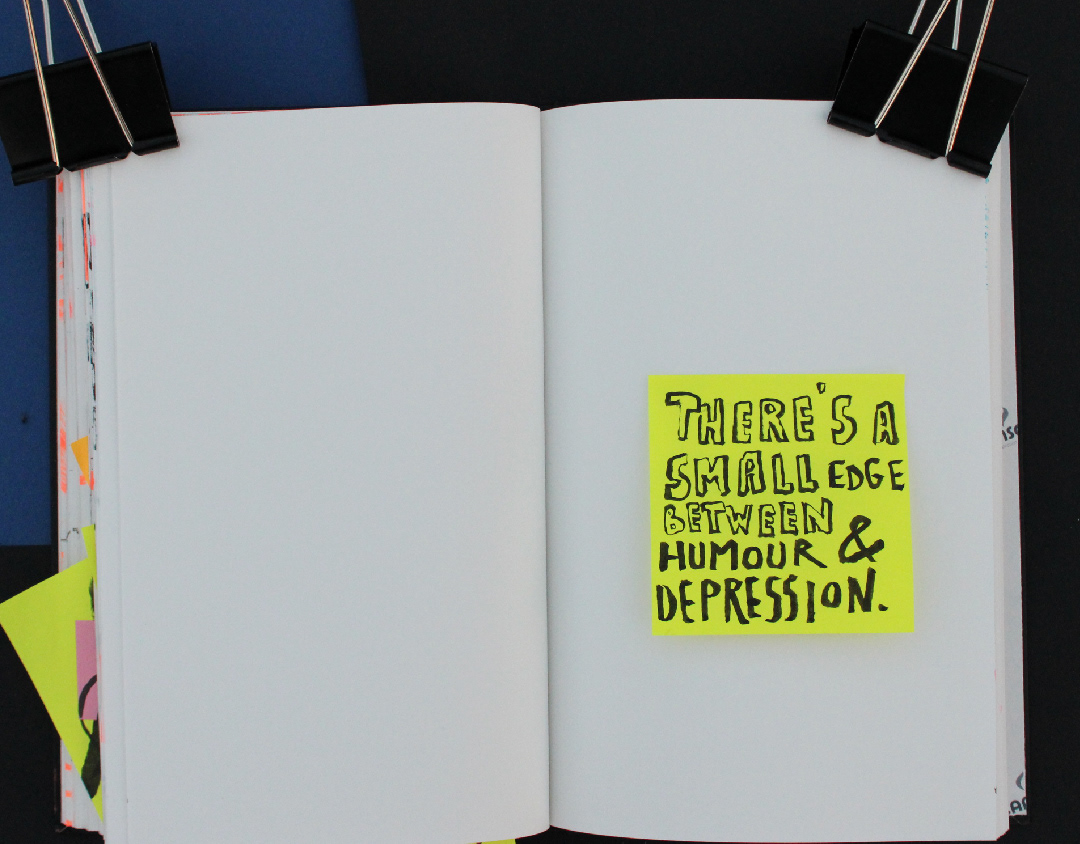 THERE'S A
SMALL EDGE
BETWEEN
HUMOUR &
DEPRESSION.